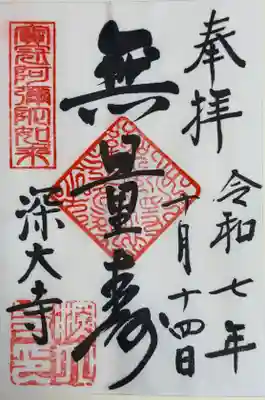 奉拝
令和七年
十月十四日
無量壽
深大寺
寳冠阿彌陀如来